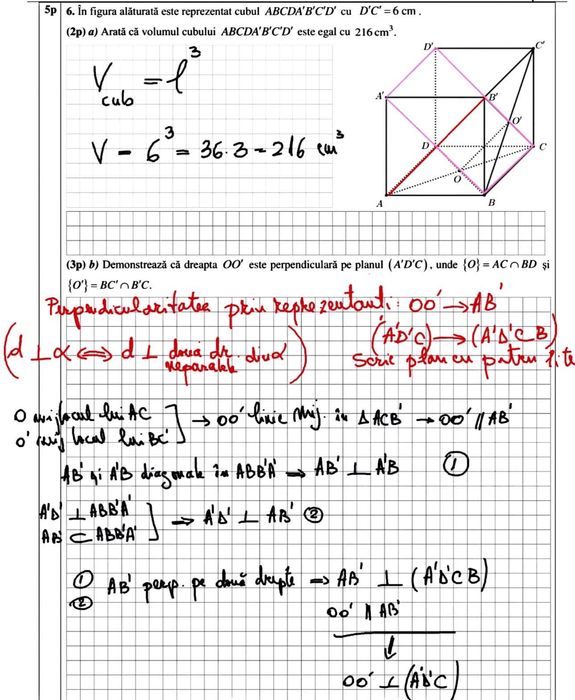 5p 6. În figura alăturată este reprezentat cubul ABCDA'B'C'D' cu D'C' = 6 cm .
(2p) a) Arată că volumul cubului ABCDA'B'C'D' este egal cu 216 cm³.
V cub = l³
V = 6³ = 36·3 = 216 cm³
D' C'
A' B'
O'
D C
O
A B
(3p) b) Demonstrează că dreapta OO' este perpendiculară pe planul (A'D'C), unde {O} = AC ∩ BD și
{O'} = BC' ∩ B'C.
Perpendicularitatea prin reprezentanti: OO' → AB'
(A'D'C) → (A'D'CB)
(d ⊥ α ⟺ d ⊥ două dr. din α
neparalele)
Scrie plan cu patru lite
O mijlocul lui AC
O' mijlocul lui BC'
→ OO' linie mij. în Δ ACB' → OO' ∥ AB'
AB' și A'B diagonale în ABB'A' ⇒ AB' ⊥ A'B ①
A'D' ⊥ ABB'A'
AB' ⊂ ABB'A'
⇒ A'D' ⊥ AB' ②
①
② AB' perp. pe două drepte ⇒ AB' ⊥ (A'D'CB)
OO' ∥ AB'
⇓
OO' ⊥ (A'D'C)